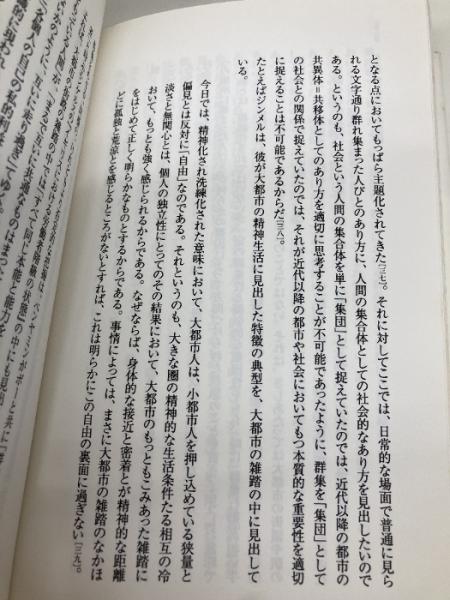 となる点においてもっぱら主題化されてきた[三七]。それに対してここでは、日常的な場面で普通に見ら
れる文字通り群れ集まった人びとのあり方に、人間の集合体としての社会的なあり方を見出したいので
ある。というのも、社会という人間の集合体を単に「集団」として捉えていたのでは、近代以降の都市の
共異体=共移体としてのあり方を適切に思考することが不可能であったように、群集を「集団」として
の社会との関係で捉えていたのでは、それが近代以降の都市や社会においてもつ本質的な重要性を適切
に捉えることは不可能であるからだ[三八]。
たとえばジンメルは、彼が大都市の精神生活に見出した特徴の典型を、大都市の雑踏の中に見出して
いる。
今日では、精神化され洗練化された意味において、大都市人は、小都市人を押し込めている狭量と
偏見とは反対に「自由」なのである。それというのも、大きな圏の精神的な生活条件たる相互の冷
淡さと無関心とは、個人の独立性にとってのその結果において、大都市のもっともこみあった雑踏に
おいて、もっとも強く感じられるからである。なぜならば、身体的な接近と密着とが精神的な距離
をはじめて正しく明らかなものとするからである。事情によっては、まさに大都市の雑踏のなかほ
どに孤独と荒涼とを感じるところがないとすれば、これは明らかにこの自由の裏面に過ぎない[三九]。